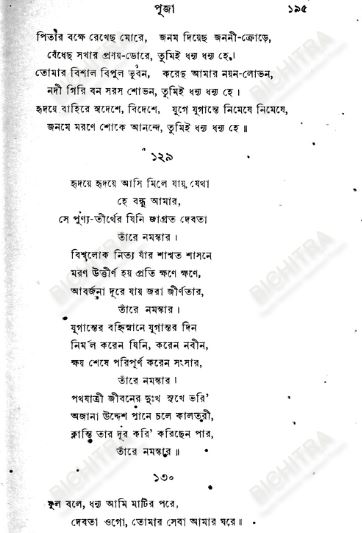 পূজা ১৯৫
পিতার বক্ষে রেখেছ মোরে, জনম দিয়েছ জননী-ক্রোড়ে,
বেঁধেছ সখার প্রণয়-ডোরে, তুমিই ধন্য ধন্য হে।
তোমার বিশাল বিপুল ভুবন, করেছ আমার নয়ন-লোভন,
নদী গিরি বন সরস শোভন, তুমিই ধন্য ধন্য হে।
হৃদয়ে বাহিরে স্বদেশে, বিদেশে, যুগে যুগান্তে নিমেষে নিমেষে,
জনমে মরণে শোকে আনন্দে, তুমিই ধন্য ধন্য হে॥
১২৯
হৃদয়ে হৃদয়ে আসি মিলে যায় যেথা
হে বন্ধু আমার,
সে পুণ্য-তীর্থের যিনি জাগ্রত দেবতা
তাঁরে নমস্কার।
বিশ্বলোক নিত্য যাঁর শাশ্বত শাসনে
মরণ উত্তীর্ণ হয় প্রতি ক্ষণে ক্ষণে,
আবর্জনা দূরে যায় জরা জীর্ণতার,
তাঁরে নমস্কার।
যুগান্তের বহ্নিস্নানে যুগান্তর দিন
নির্মল করেন যিনি, করেন নবীন,
ক্ষয় শেষে পরিপূর্ণ করেন সংসার,
তাঁরে নমস্কার।
পথযাত্রী জীবনের দুঃখ সুখে ভরি'
অজানা উদ্দেশ পানে চলে কালতরী,
ক্লান্তি তার দূর করি' করিছেন পার,
তাঁরে নমস্কার॥
১৩০
ফুল বলে, ধন্য আমি মাটির পরে,
দেবতা ওগো, তোমার সেবা আমার ঘরে॥
BICHITRA
BICHITRA
BICHITRA
BICHITRA
BICHITRA
BICHITRA